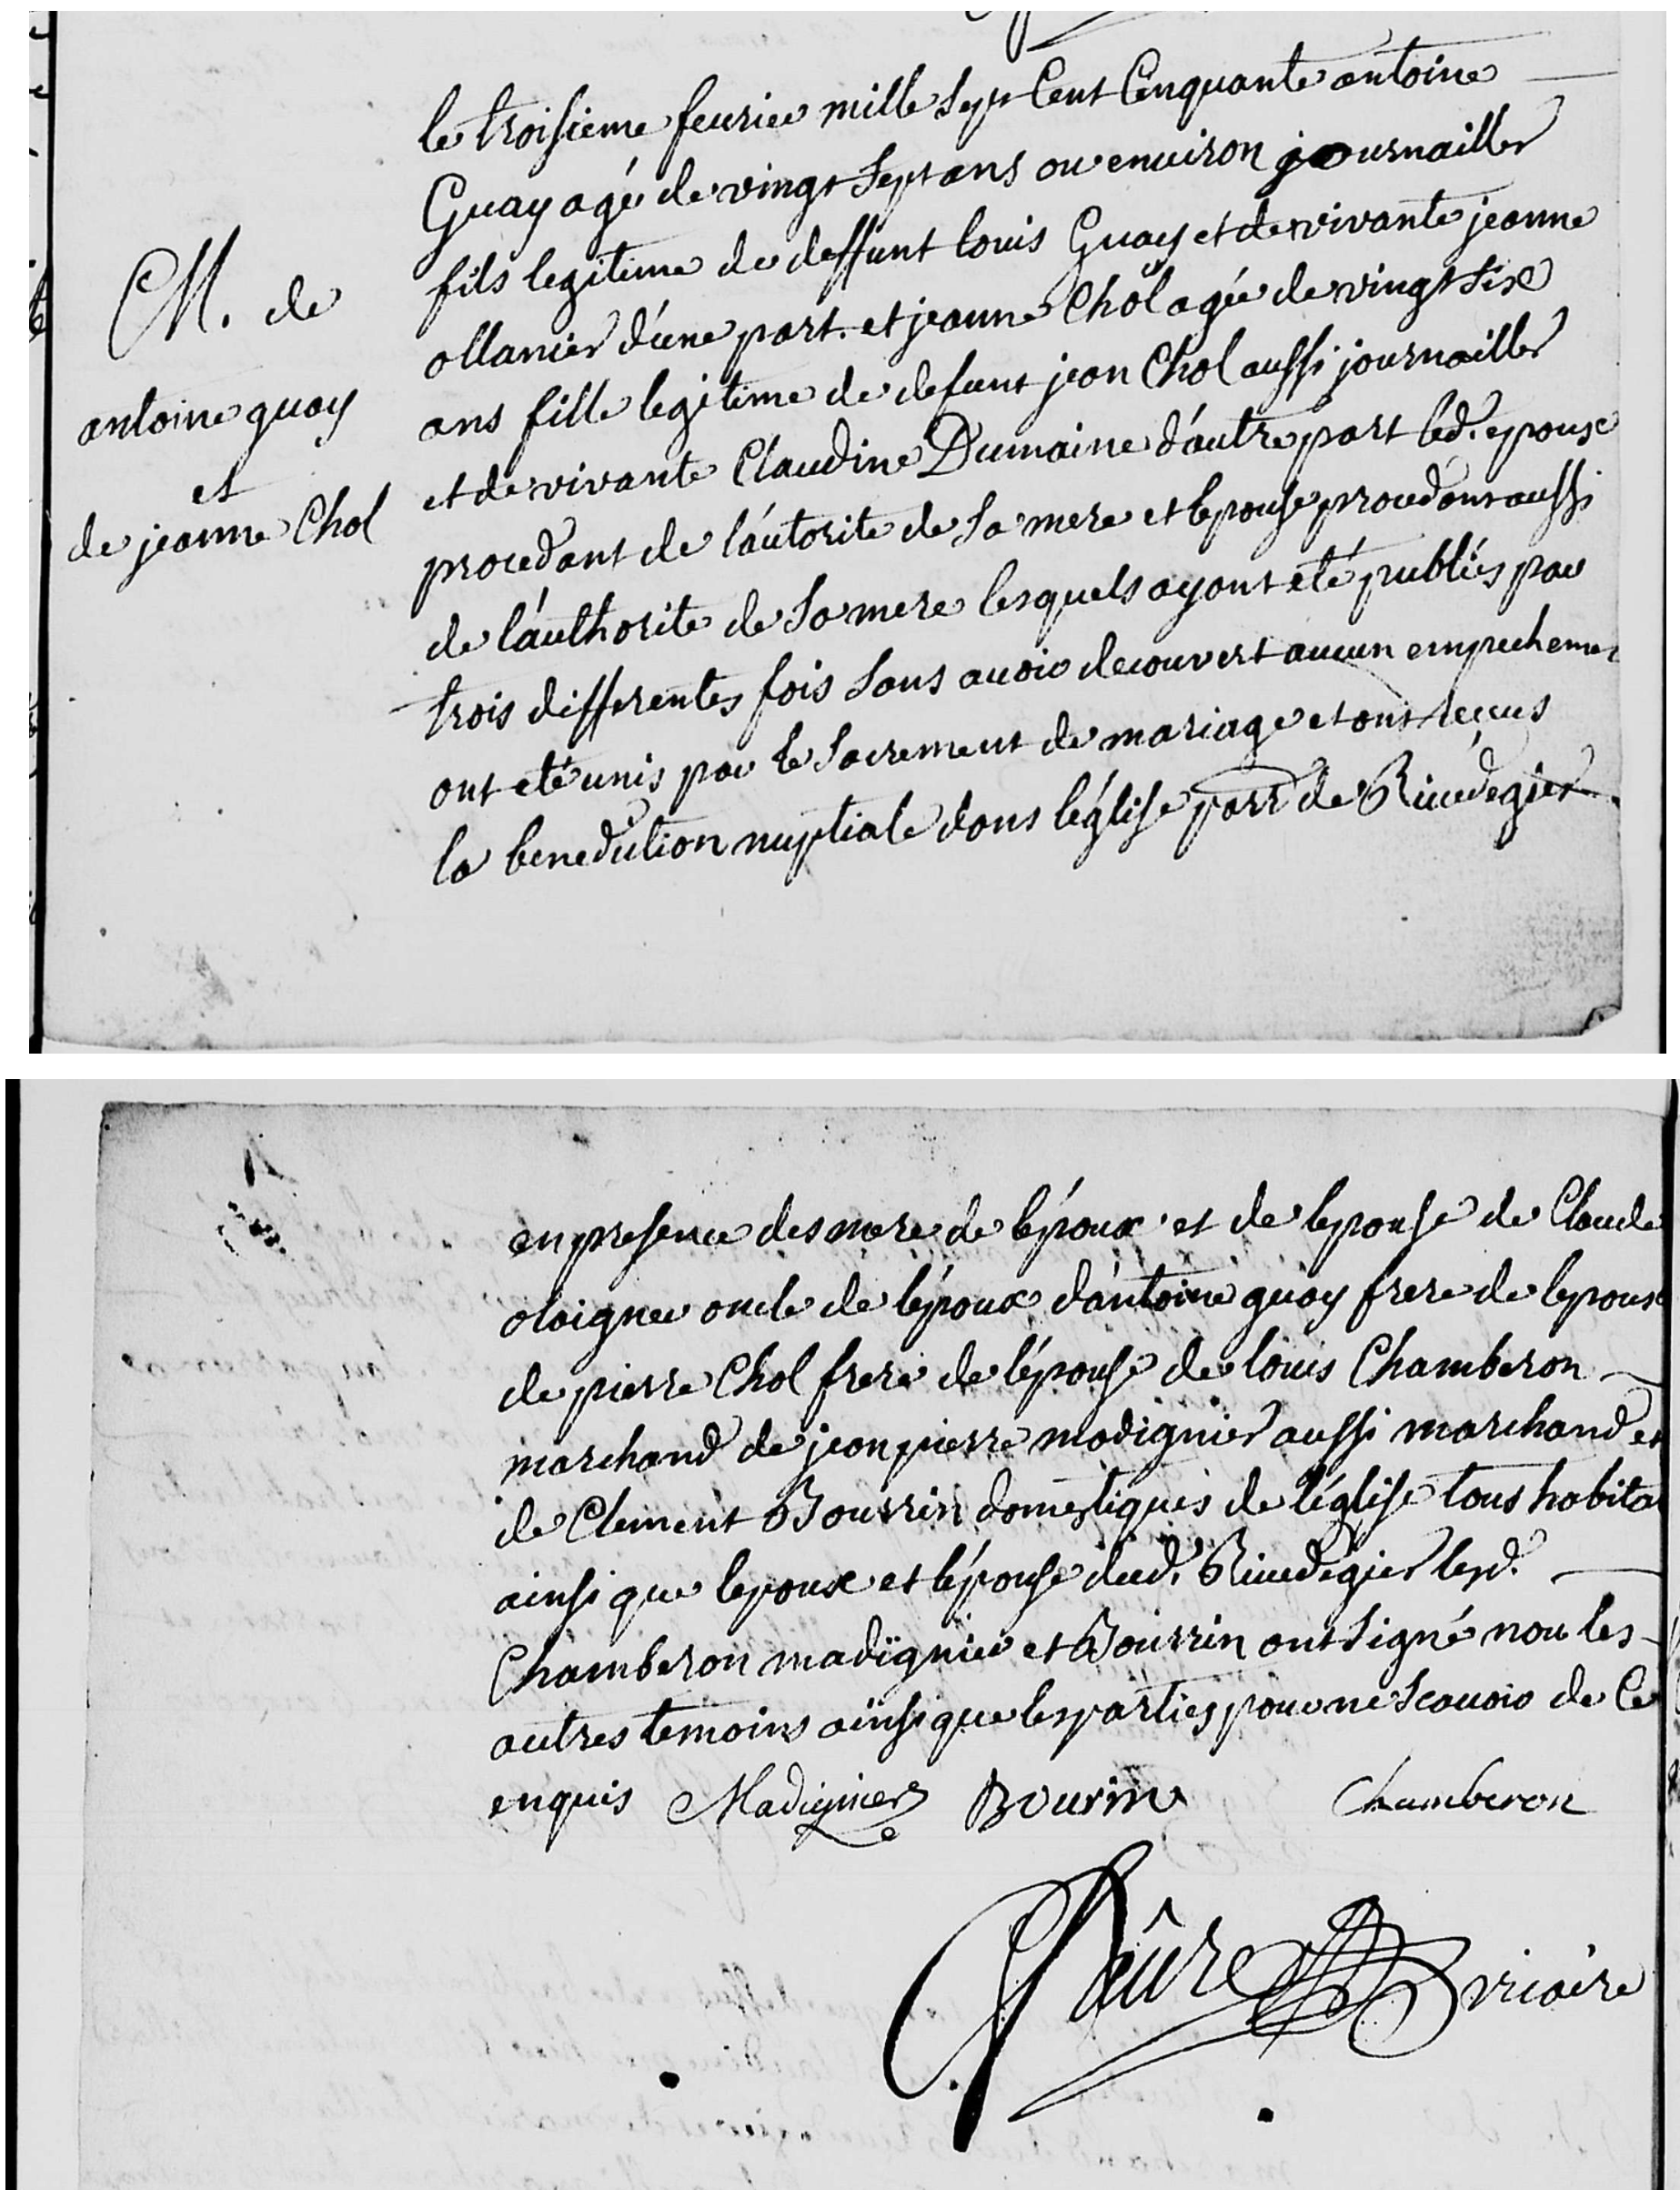 le troisieme feurier mille sept Cent Cenquante antoine
Guay agé de vingt sept ans ou enuiron journaillier
fils legitime de deffunt louis Guay et de vivante jeanne
ollanier d'une part. et jeanne Chol agée de vingt six
ans fille legitime de defunt jean Chol aussi journaillier
et de vivante Claudine Dumaine d'autre part led. epoux
procedant de l'autorite de sa mere et lepouse procedant aussi
de l'authorite de sa mere lesquels ayant eté publiés par
trois differentes fois sans auoir decouvert aucun empechement
ont eté unis par le sacrement de mariage et ont reçus
la benediction nuptiale dans l'église parr de Riuedegier
M. de
antoine guay
et
de jeanne Chol
en presence des mere de l'époux et de lepouse de Claude
oloignier oncle de l'époux d'antoine guay frere de lepoux
de pierre Chol frere de l'épouse de louis Chamberon
marchand de jean pierre madignier aussi marchand et
de Clement Bourrin domestiques de l'église tous habita
ainsi que lepoux et l'épouse dud. Riuedegier lesd.
Chamberon madignier et Bourrin ont signé non les
autres temoins ainsi que les parties pour ne scauoir de Ce
enquis Madignier Bourin Chamberon
Faûre vicaire